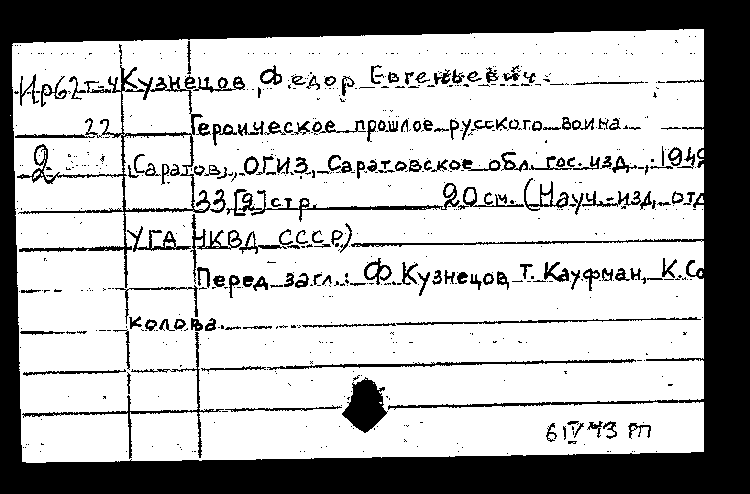 Ир62т-4 Кузнецов, Федор Евгеньевич.
22 Героическое прошлое русского воина.
2 [Саратов], ОГИЗ, Саратовское обл. гос. изд.,
33,[2]стр. 20 см. (Науч.-изд. отд
УГА НКВД СССР)
Перед загл.: Ф. Кузнецов, Т. Кауфман, К. Со
колова.
6 IV 43 РП